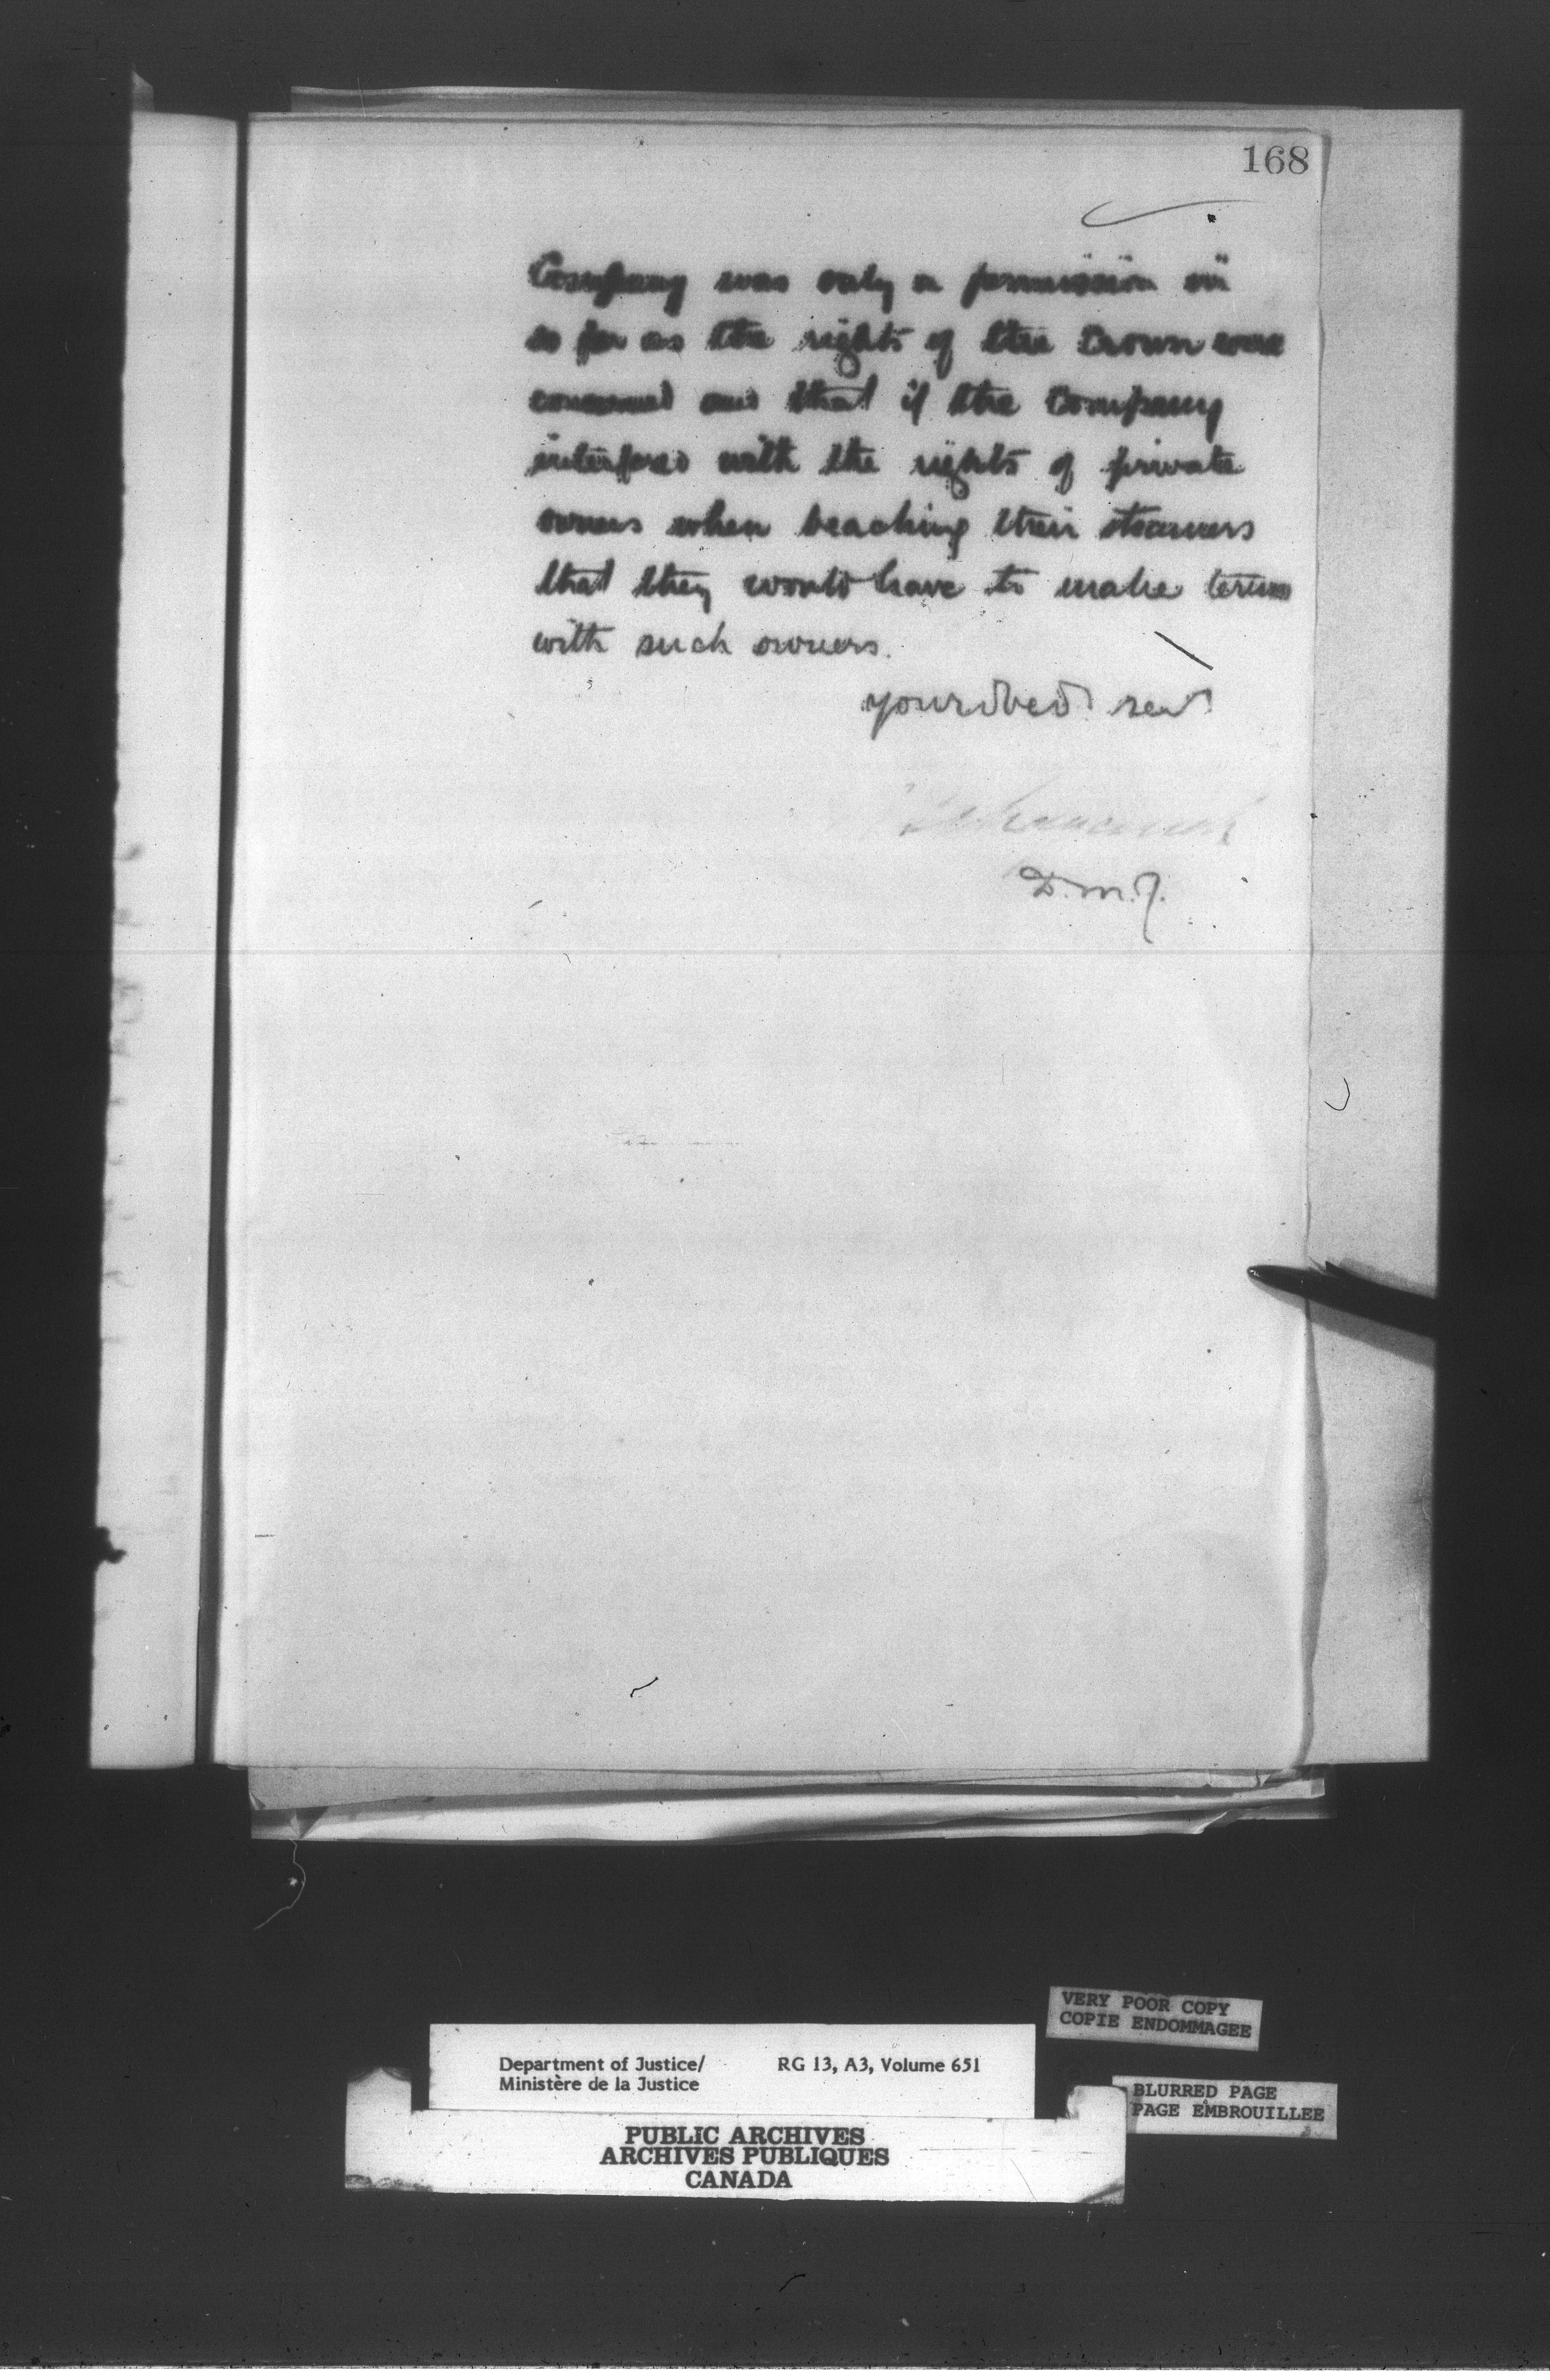 168
Company was only a permission in
so far as the rights of the Crown were
concerned and that if the Company
interfered with the rights of private
owners when beaching their steamers
that they would have to make terms
with such owners.
your obed servt
D.M.J.
VERY POOR COPY
COPIE ENDOMMAGEE
Department of Justice/ RG 13, A3, Volume 651
Ministère de la Justice
BLURRED PAGE
PAGE EMBROUILLEE
PUBLIC ARCHIVES
ARCHIVES PUBLIQUES
CANADA